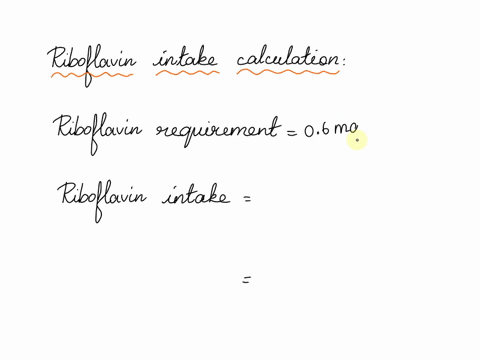 Riboflavin intake calculation:
Riboflavin requirement = 0.6 mg
Riboflavin intake =
=